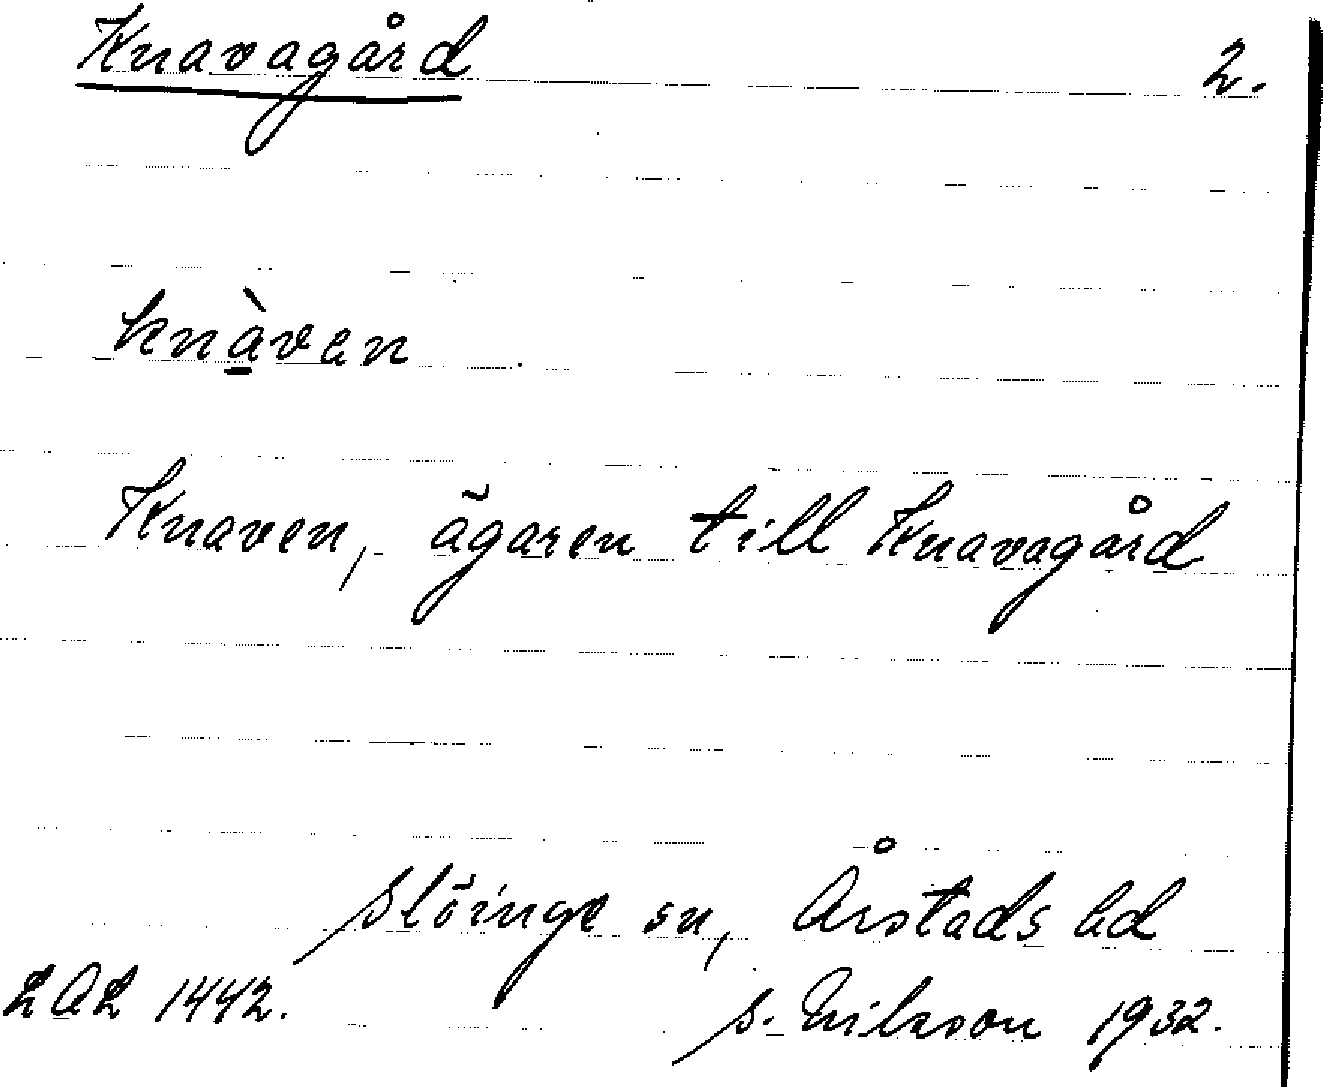 Knavagård 2.
knàven
Knaven, ägaren till Knavagård
Slöinge sn, Årstads hd
LAL 1442. S. Nilsson 1932.